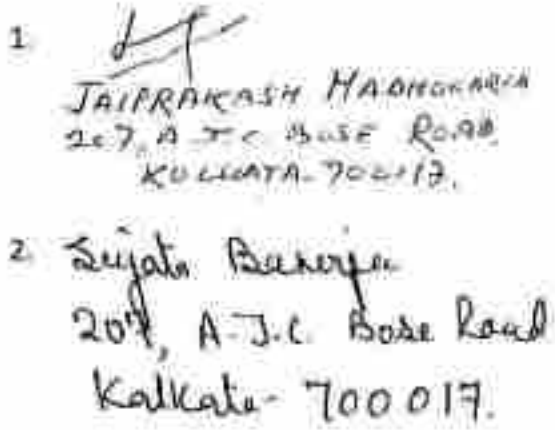 1.
JAIPRAKASH
207, A.J.C. BOSE ROAD
KOLKATA-700017.
2. Sujata Banerjee
207, A.J.C. Bose Road
Kolkata- 700017.